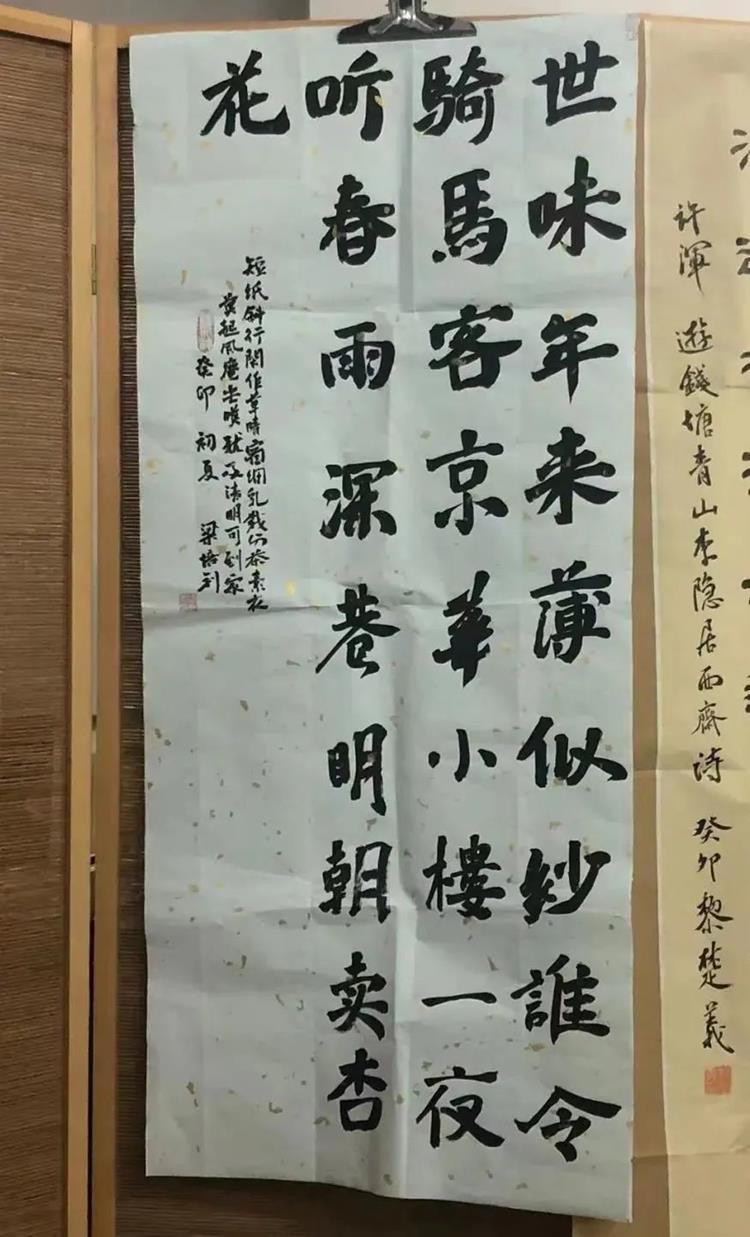 许渾 遊錢塘青山李隐居西齋詩 癸卯黎楚義
世味年来薄似紗誰令
騎馬客京華小樓一夜
听春雨深巷明朝卖杏
花
短纸斜行閑作草晴窗细乳戲分茶素衣
莫起风塵嘆犹及清明可到家
癸卯 初夏 梁培